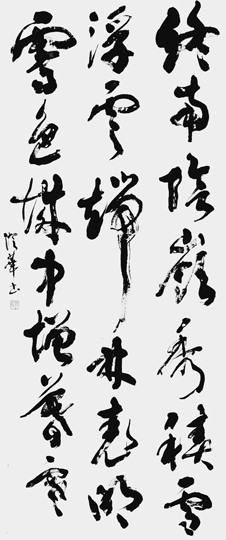 終南陰嶺秀積雪
浮雲端林表明
霽色城中增暮寒